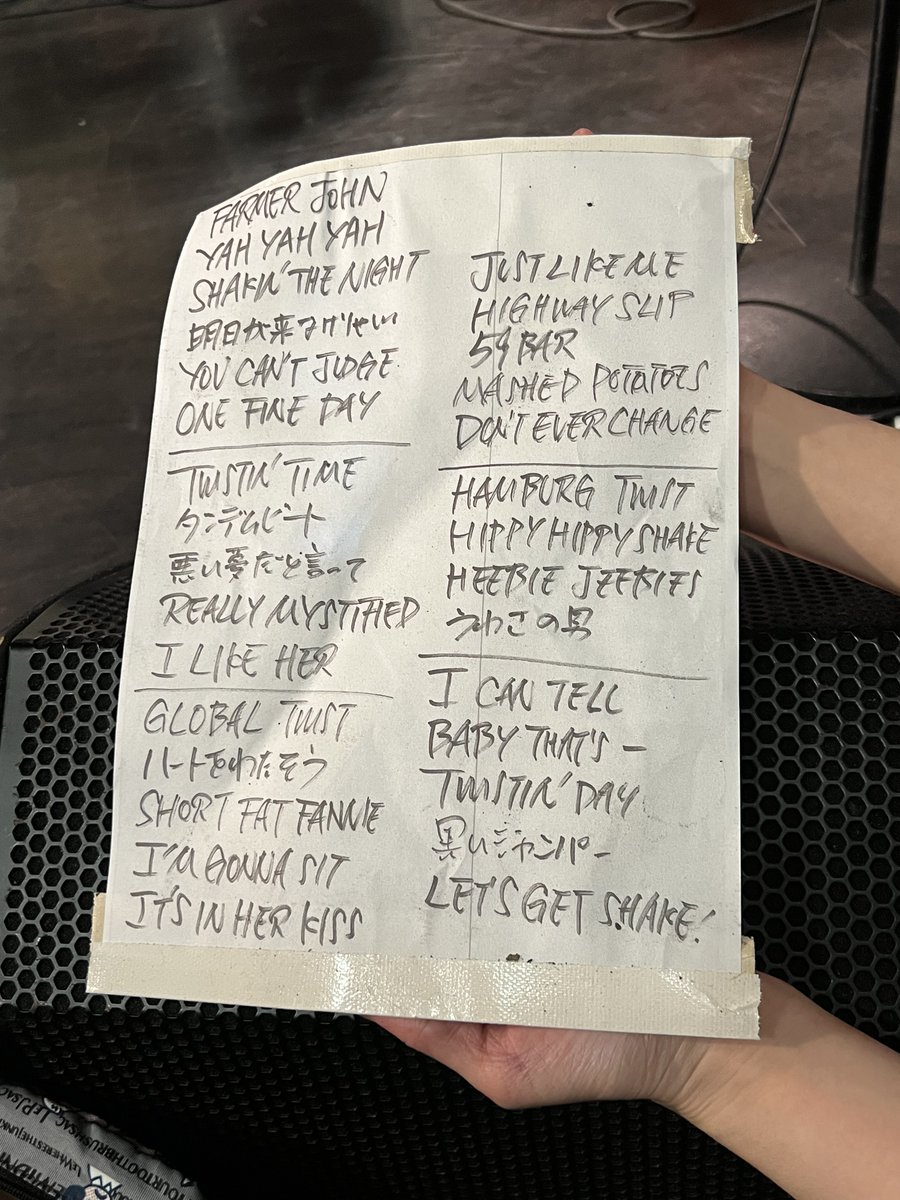 FARMER JOHN
YAH YAH YAH
SHAKIN' THE NIGHT
明日が来るけりゃいい
YOU CAN'T JUDGE
ONE FINE DAY
TWISTIN' TIME
タンデムビート
悪い夢だと言って
REALLY MYSTIFIED
I LIKE HER
GLOBAL TWIST
ハートをわたそう
SHORT FAT FANNIE
I'M GONNA SIT
IT'S IN HER KISS
JUST LIKE ME
HIGHWAY SLIP
59 BAR
MASHED POTATOES
DON'T EVER CHANGE
HAMBURG TWIST
HIPPY HIPPY SHAKE
HEEBIE JEEBIES
うわごの男
I CAN TELL
BABY THAT'S –
TWISTIN' DAY
黒いジャンパー
LET'S GET SHAKE!
YOURTOOTHBRUSH